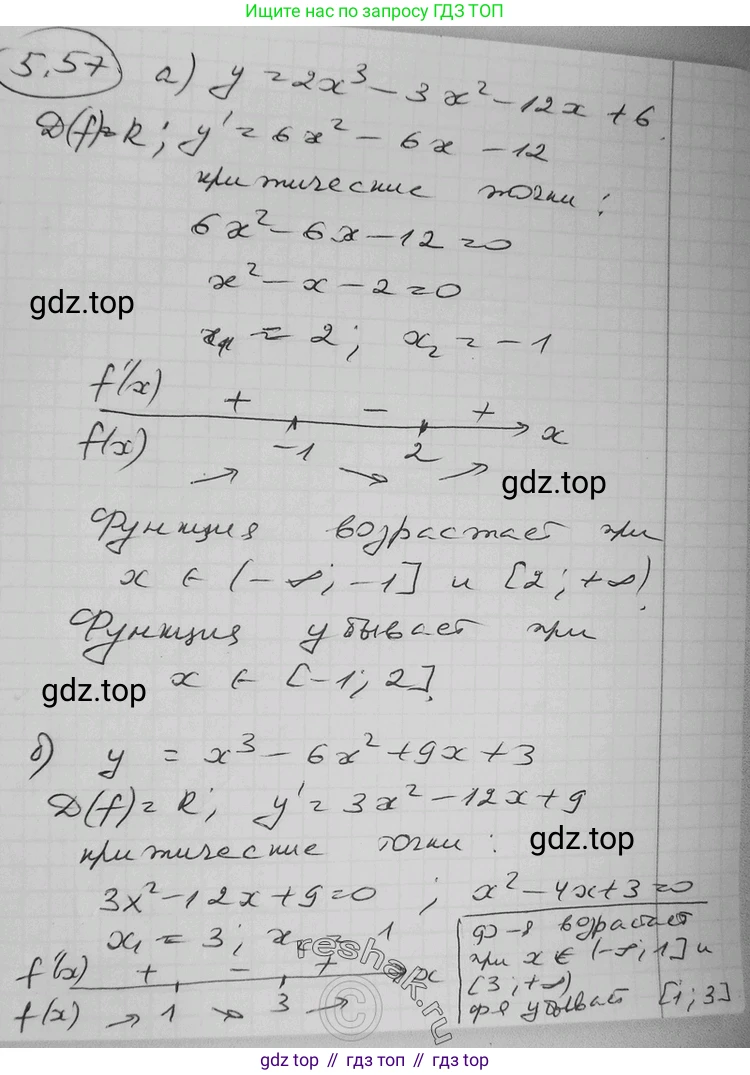 Ищите нас по запросу ГДЗ ТОП
5.57 а) y = 2x³ - 3x² - 12x + 6.
D(f)=R; y' = 6x² - 6x - 12
критические точки:
6x² - 6x - 12 = 0
x² - x - 2 = 0
gdz.top
x₁ = 2; x₂ = -1
f'(x) + - +
f(x) -1 2 x
gdz.top
Функция возрастает при
x ∈ (-∞; -1] и [2; +∞).
Функция убывает при
gdz.top
x ∈ [-1; 2].
б) y = x³ - 6x² + 9x + 3
D(f) = R; y' = 3x² - 12x + 9
критические точки:
gdz.top
3x² - 12x + 9 = 0; x² - 4x + 3 = 0
x₁ = 3; x₂ = 1
f'(x) + - + x
f(x) 1 3
ф-я возрастает
при x ∈ (-∞; 1] и
[3; +∞)
ф-я убывает [1; 3]
reshak.ru
©
gdz.top // гдз топ // gdz.top